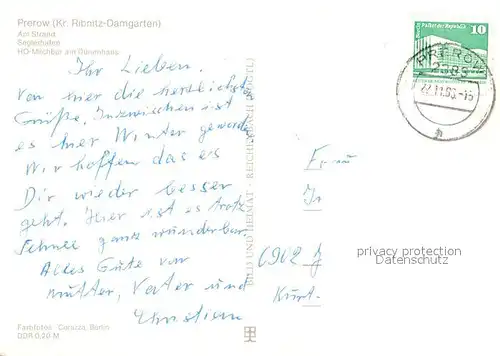 Prerow (Kr. Ribnitz-Damgarten)
Am Strand
Seglerhafen
HO-Milchbar am Dünenhaus
10
PREROW
2385
22.11.85-15
h
Ihr Lieben.
Von hier die herzlichsten
Grüße. Inzwischen ist
es hier Winter geworden
Wir hoffen das es
Dir wieder besser
geht. Hier ist es trotz
Schnee ganz wunderbar.
Alles Gute von
mutter, Vater und
Christian
BILD UND HEIMAT · REICHENBACH
Frau
6902 J
Kurt.
privacy protection
Datenschutz
Farbfotos: Berlin
DDR 0,20 M